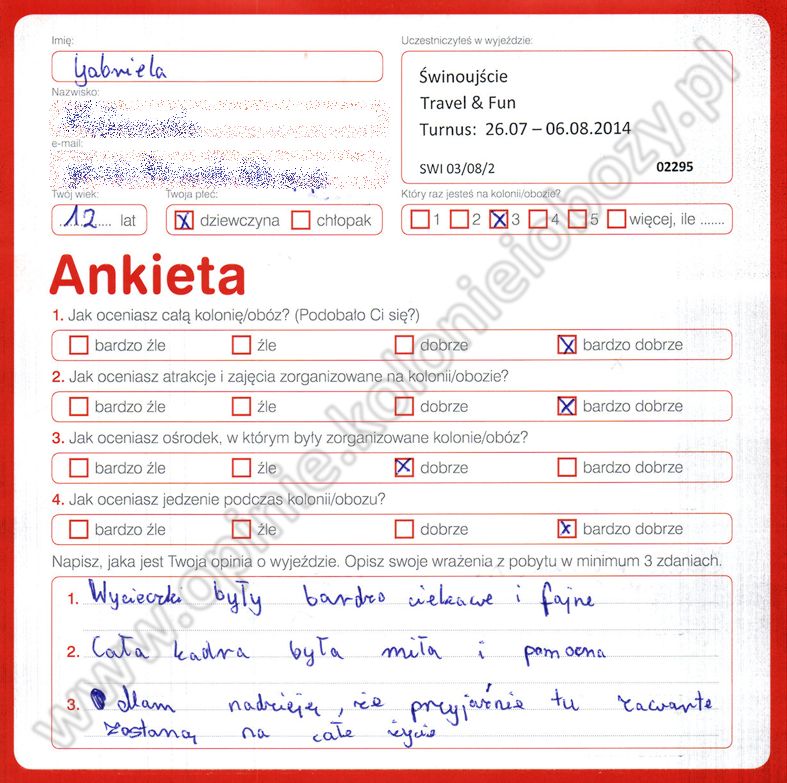 Imię:
Gabriela
Nazwisko:
e-mail:
Twój wiek:
12 lat
Twoja płeć:
dziewczyna chłopak
Uczestniczyłeś w wyjeździe:
Świnoujście
Travel & Fun
Turnus: 26.07 – 06.08.2014
SWI 03/08/2 02295
Który raz jesteś na kolonii/obozie?
1 2 3 4 5 więcej, ile .......
Ankieta
1. Jak oceniasz całą kolonię/obóz? (Podobało Ci się?)
bardzo źle źle dobrze bardzo dobrze
2. Jak oceniasz atrakcje i zajęcia zorganizowane na kolonii/obozie?
bardzo źle źle dobrze bardzo dobrze
3. Jak oceniasz ośrodek, w którym były zorganizowane kolonie/obóz?
bardzo źle źle dobrze bardzo dobrze
4. Jak oceniasz jedzenie podczas kolonii/obozu?
bardzo źle źle dobrze bardzo dobrze
Napisz, jaka jest Twoja opinia o wyjeździe. Opisz swoje wrażenia z pobytu w minimum 3 zdaniach.
1. Wycieczki były bardzo ciekawe i fajne
2. Cała kadra była miła i pomocna
3. Mam nadzieję, że przyjaźnie tu zawarte
zostaną na całe życie
www.opinie.kolonieiobozy.pl